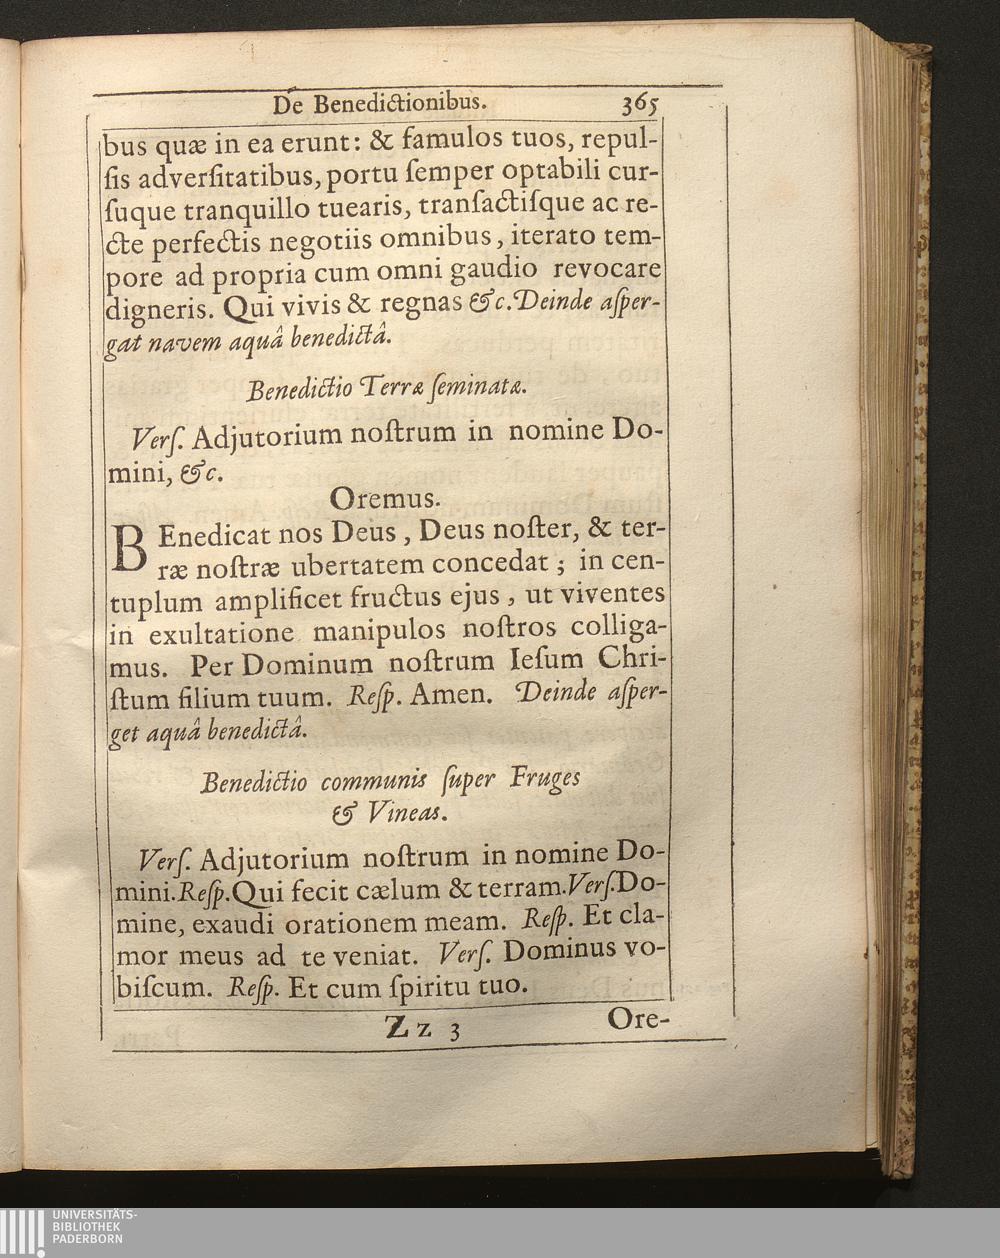 De Benedictionibus. 365
bus quæ in ea erunt: & famulos tuos, repul-
ſis adverſitatibus, portu ſemper optabili cur-
ſuque tranquillo tuearis, tranſactiſque ac re-
cte perfectis negotiis omnibus, iterato tem-
pore ad propria cum omni gaudio revocare
digneris. Qui vivis & regnas &c. Deinde aſper-
gat navem aquâ benedictâ.
Benedictio Terræ ſeminatæ.
Verſ. Adjutorium noſtrum in nomine Do-
mini, &c.
Oremus.
BEnedicat nos Deus, Deus noſter, & ter-
ræ noſtræ ubertatem concedat; in cen-
tuplum amplificet fructus ejus, ut viventes
in exultatione manipulos noſtros colliga-
mus. Per Dominum noſtrum Ieſum Chri-
ſtum filium tuum. Reſp. Amen. Deinde aſper-
get aquâ benedictâ.
Benedictio communis ſuper Fruges
& Vineas.
Verſ. Adjutorium noſtrum in nomine Do-
mini. Reſp. Qui fecit cælum & terram. Verſ. Do-
mine, exaudi orationem meam. Reſp. Et cla-
mor meus ad te veniat. Verſ. Dominus vo-
biſcum. Reſp. Et cum ſpiritu tuo.
Zz 3 Ore-
UNIVERSITÄTS-
BIBLIOTHEK
PADERBORN